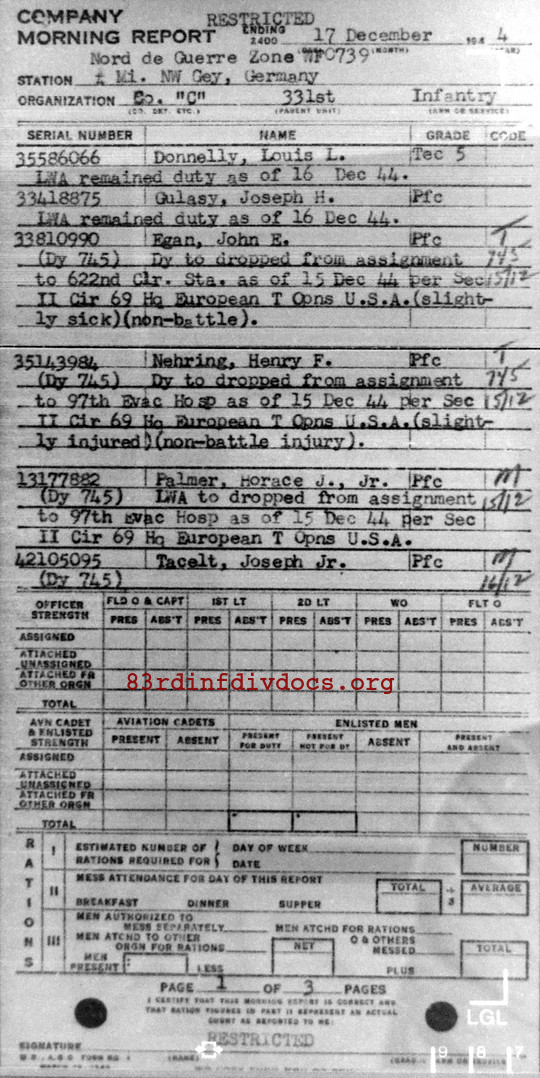 COMPANY
RESTRICTED
MORNING REPORT ENDING 2400 17 December 194 4
(MONTH) (YEAR)
Nord de Guerre Zone WF0739
STATION Mi. NW Gey, Germany
ORGANIZATION Co. "C" 331st Infantry
(CO. DET. ETC.) (PARENT UNIT) (ARM OR SERVICE)
SERIAL NUMBER NAME GRADE CODE
35586066 Donnelly, Louis L. Tec 5
LWA remained duty as of 16 Dec 44.
33418875 Gulasy, Joseph H. Pfc
LWA remained duty as of 16 Dec 44.
33810990 Egan, John E. Pfc T
(Dy 745) Dy to dropped from assignment 745
to 622nd Clr. Sta. as of 15 Dec 44 per Sec 15/12
II Cir 69 Hq European T Opns U.S.A.(slight-
ly sick)(non-battle).
35143984 Nehring, Henry F. Pfc T
(Dy 745) Dy to dropped from assignment 745
to 97th Evac Hosp as of 15 Dec 44 per Sec 15/12
II Cir 69 Hq European T Opns U.S.A.(slight-
ly injured)(non-battle injury).
13177882 Palmer, Horace J., Jr. Pfc M
(Dy 745) LWA to dropped from assignment 15/12
to 97th Evac Hosp as of 15 Dec 44 per Sec
II Cir 69 Hq European T Opns U.S.A.
42105095 Tacelt, Joseph Jr. Pfc M
(Dy 745) 16/12
OFFICER STRENGTH FLD O & CAPT 1ST LT 2D LT WO FLT O
PRES ABS'T PRES ABS'T PRES ABS'T PRES ABS'T PRES ABS'T
ASSIGNED
ATTACHED UNASSIGNED
ATTACHED FR OTHER ORGN
83rdinfdivdocs.org
TOTAL
AVN CADET & ENLISTED STRENGTH AVIATION CADETS ENLISTED MEN
PRESENT ABSENT PRESENT FOR DUTY PRESENT NOT FOR DY ABSENT PRESENT AND ABSENT
ASSIGNED
ATTACHED UNASSIGNED
ATTACHED FR OTHER ORGN
TOTAL
RATIONS
I ESTIMATED NUMBER OF RATIONS REQUIRED FOR DAY OF WEEK DATE NUMBER
II MESS ATTENDANCE FOR DAY OF THIS REPORT TOTAL ÷ 3 AVERAGE
BREAKFAST DINNER SUPPER
III MEN AUTHORIZED TO MESS SEPARATELY MEN ATCHD FOR RATIONS
MEN ATCHD TO OTHER ORGN FOR RATIONS NET & OTHERS MESSED TOTAL
MEN PRESENT LESS PLUS
PAGE 1 OF 3 PAGES
I CERTIFY THAT THIS MORNING REPORT IS CORRECT AND
THAT RATION FIGURES IN PART II REPRESENT AN ACTUAL
COUNT AS REPORTED TO ME:
RESTRICTED
LGL
SIGNATURE
9 8 7